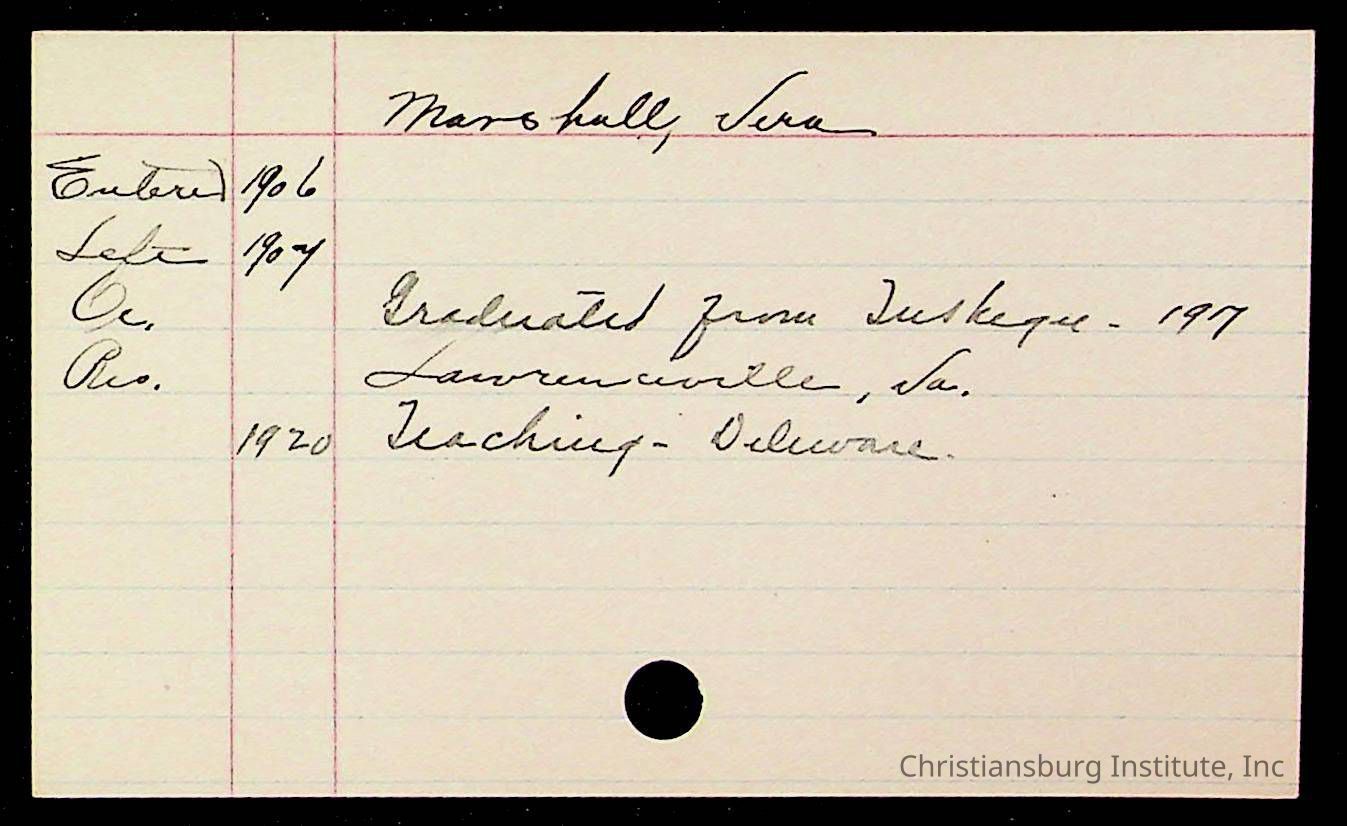 Marshall, Vera
Entered 1906
Left 1907
Oc. Graduated from Tuskegee - 197
Res. Lawrenceville, Va.
1920 Teaching - Deleware.
Christiansburg Institute, Inc